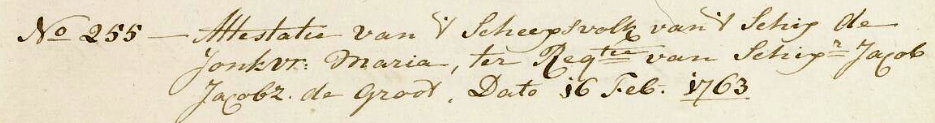 No 255 — Attestatie van 't Scheepsvolk van 't Schip de
Jonkvr: Maria, ter Reqtie van Schipr Jacob
Jacobz. de Groot. Dato 16 Feb. 1763